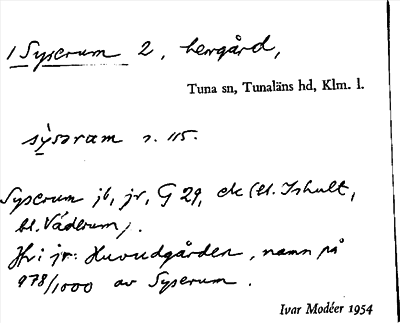 1 Syserum 2, herrgård,
Tuna sn, Tunaläns hd, Klm. l.
sỳsəram s. 115.
Syserum jb, jr, G 29, ek (bl. Ishult,
bl. Väderum).
Hvi jr: Huvudgården, namn på
978/1000 av Syserum.
Ivar Modéer 1954